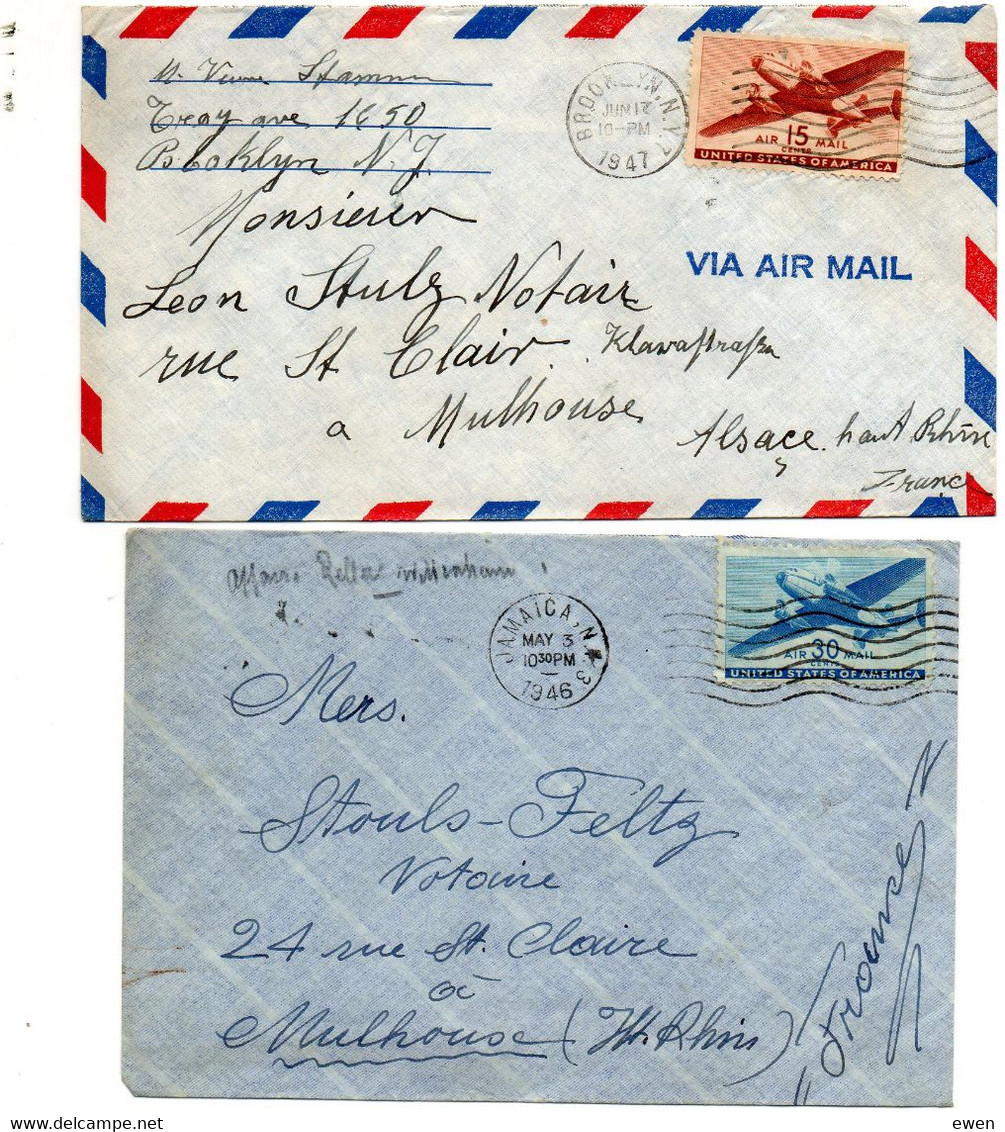 Troy ave 1650
Brooklyn N.Y.
BROOKLYN, N.Y.
JUN 17
10-PM
1947
15
AIR MAIL
CENTS
UNITED STATES OF AMERICA
Monsieur
VIA AIR MAIL
Leon Stulz Notair
rue St Clair. Klarastraße
a Mulhouse
Alsace. haut Rhin
France
affaire
JAMAICA, N.Y.
MAY 3
10 30 PM
1946
3
30
AIR MAIL
CENTS
UNITED STATES OF AMERICA
Mers.
Stouls-Feltz
Notaire
24 rue St. Claire
à
Mulhouse (Ht. Rhin)
"France"
ewen